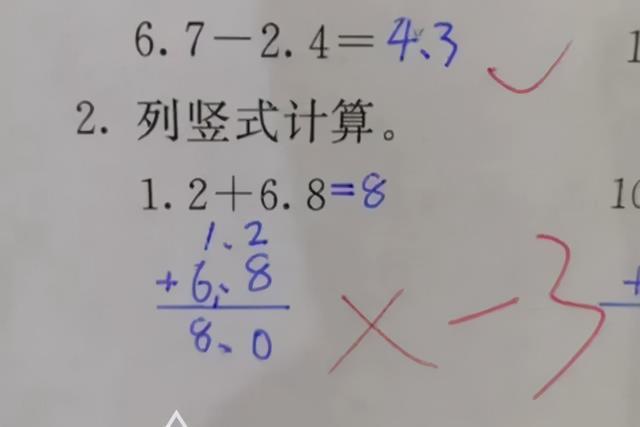 6.7-2.4=4.3
2. 列竖式计算。
1.2+6.8=8
1.2
+6.8
8.0
× -3